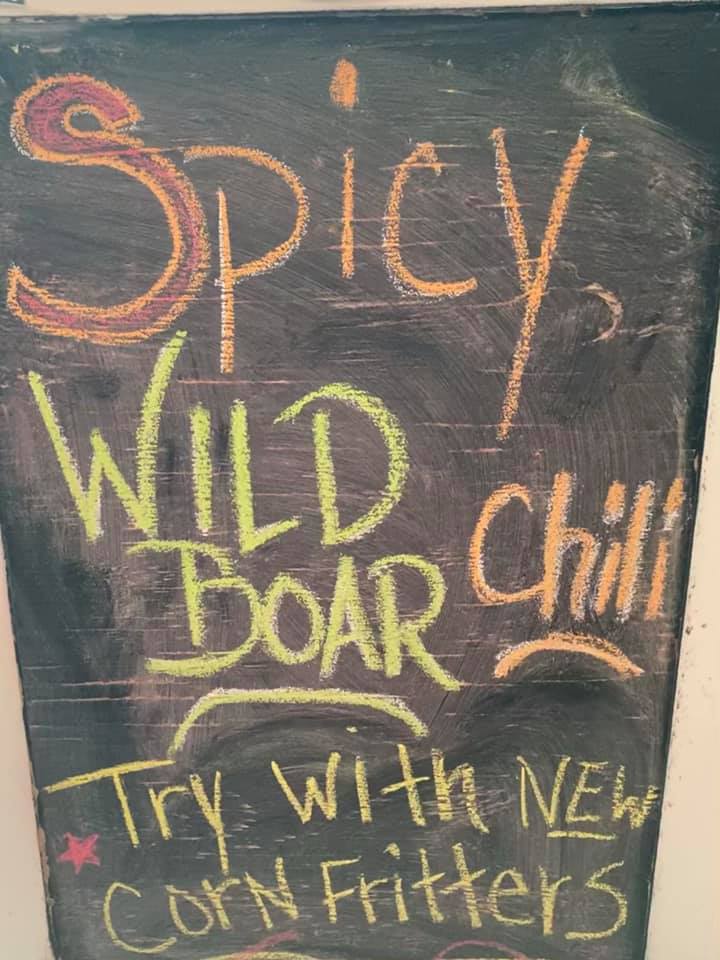 Spicy
WILD
BOAR
Chili
Try with NEW
CorN Fritters